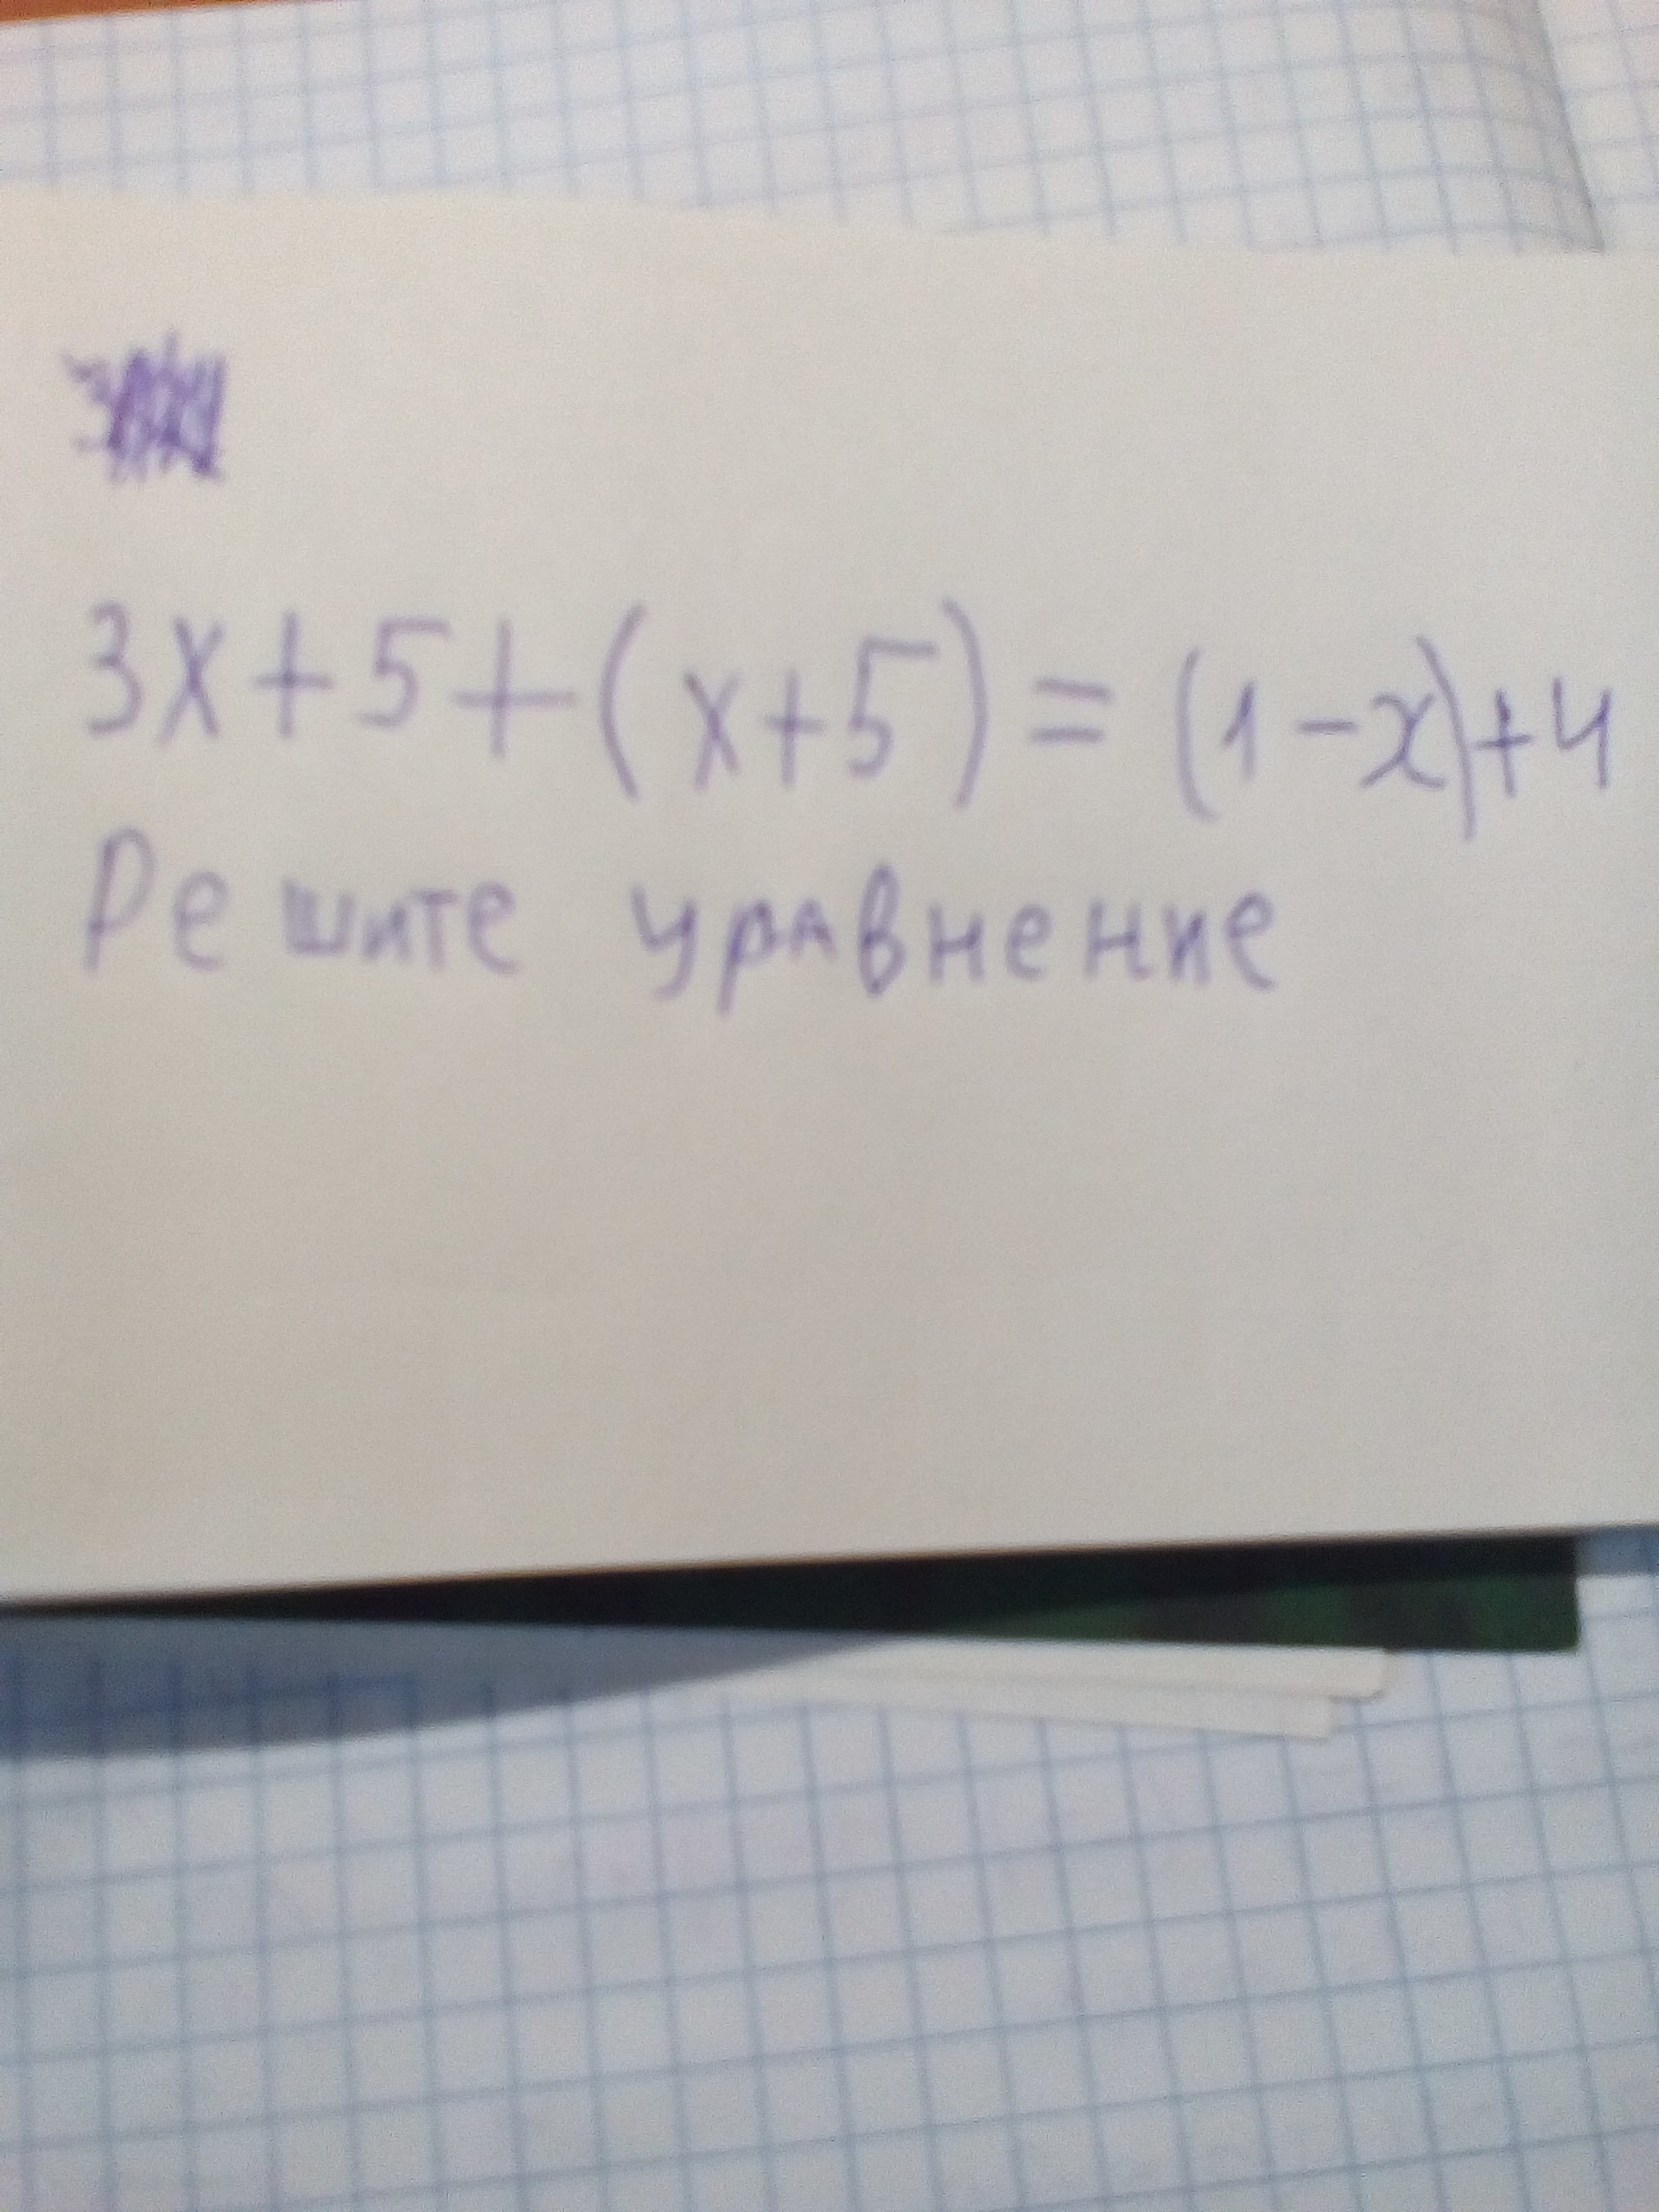 3x+5+(x+5)=(1-x)+4
Решите уравнение